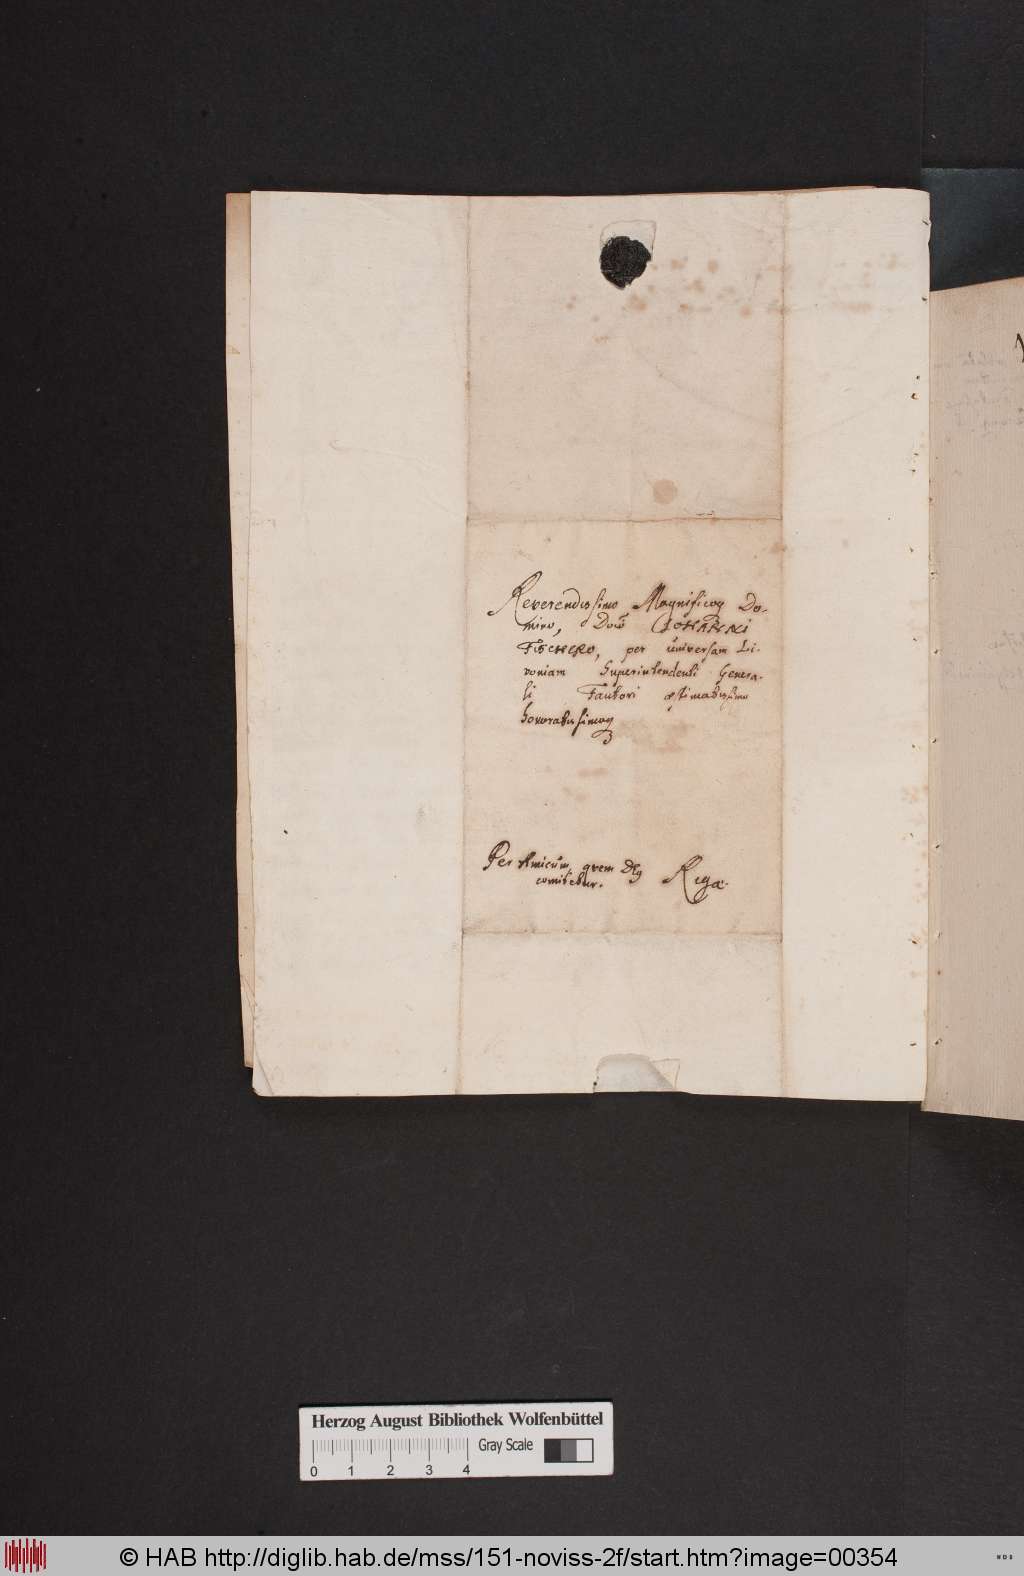 Reverendissimo Magnificoq Do-
mino, Doῦ IOHANNI
FISCHERO, per universam Li-
voniam Superintendenti Genera-
li Fautori æstimatissimo
honoratissimoq
Per Amicum, qvem Dq
comitetur.
Rigæ.
Herzog August Bibliothek Wolfenbüttel
Gray Scale
0 1 2 3 4
© HAB http://diglib.hab.de/mss/151-noviss-2f/start.htm?image=00354